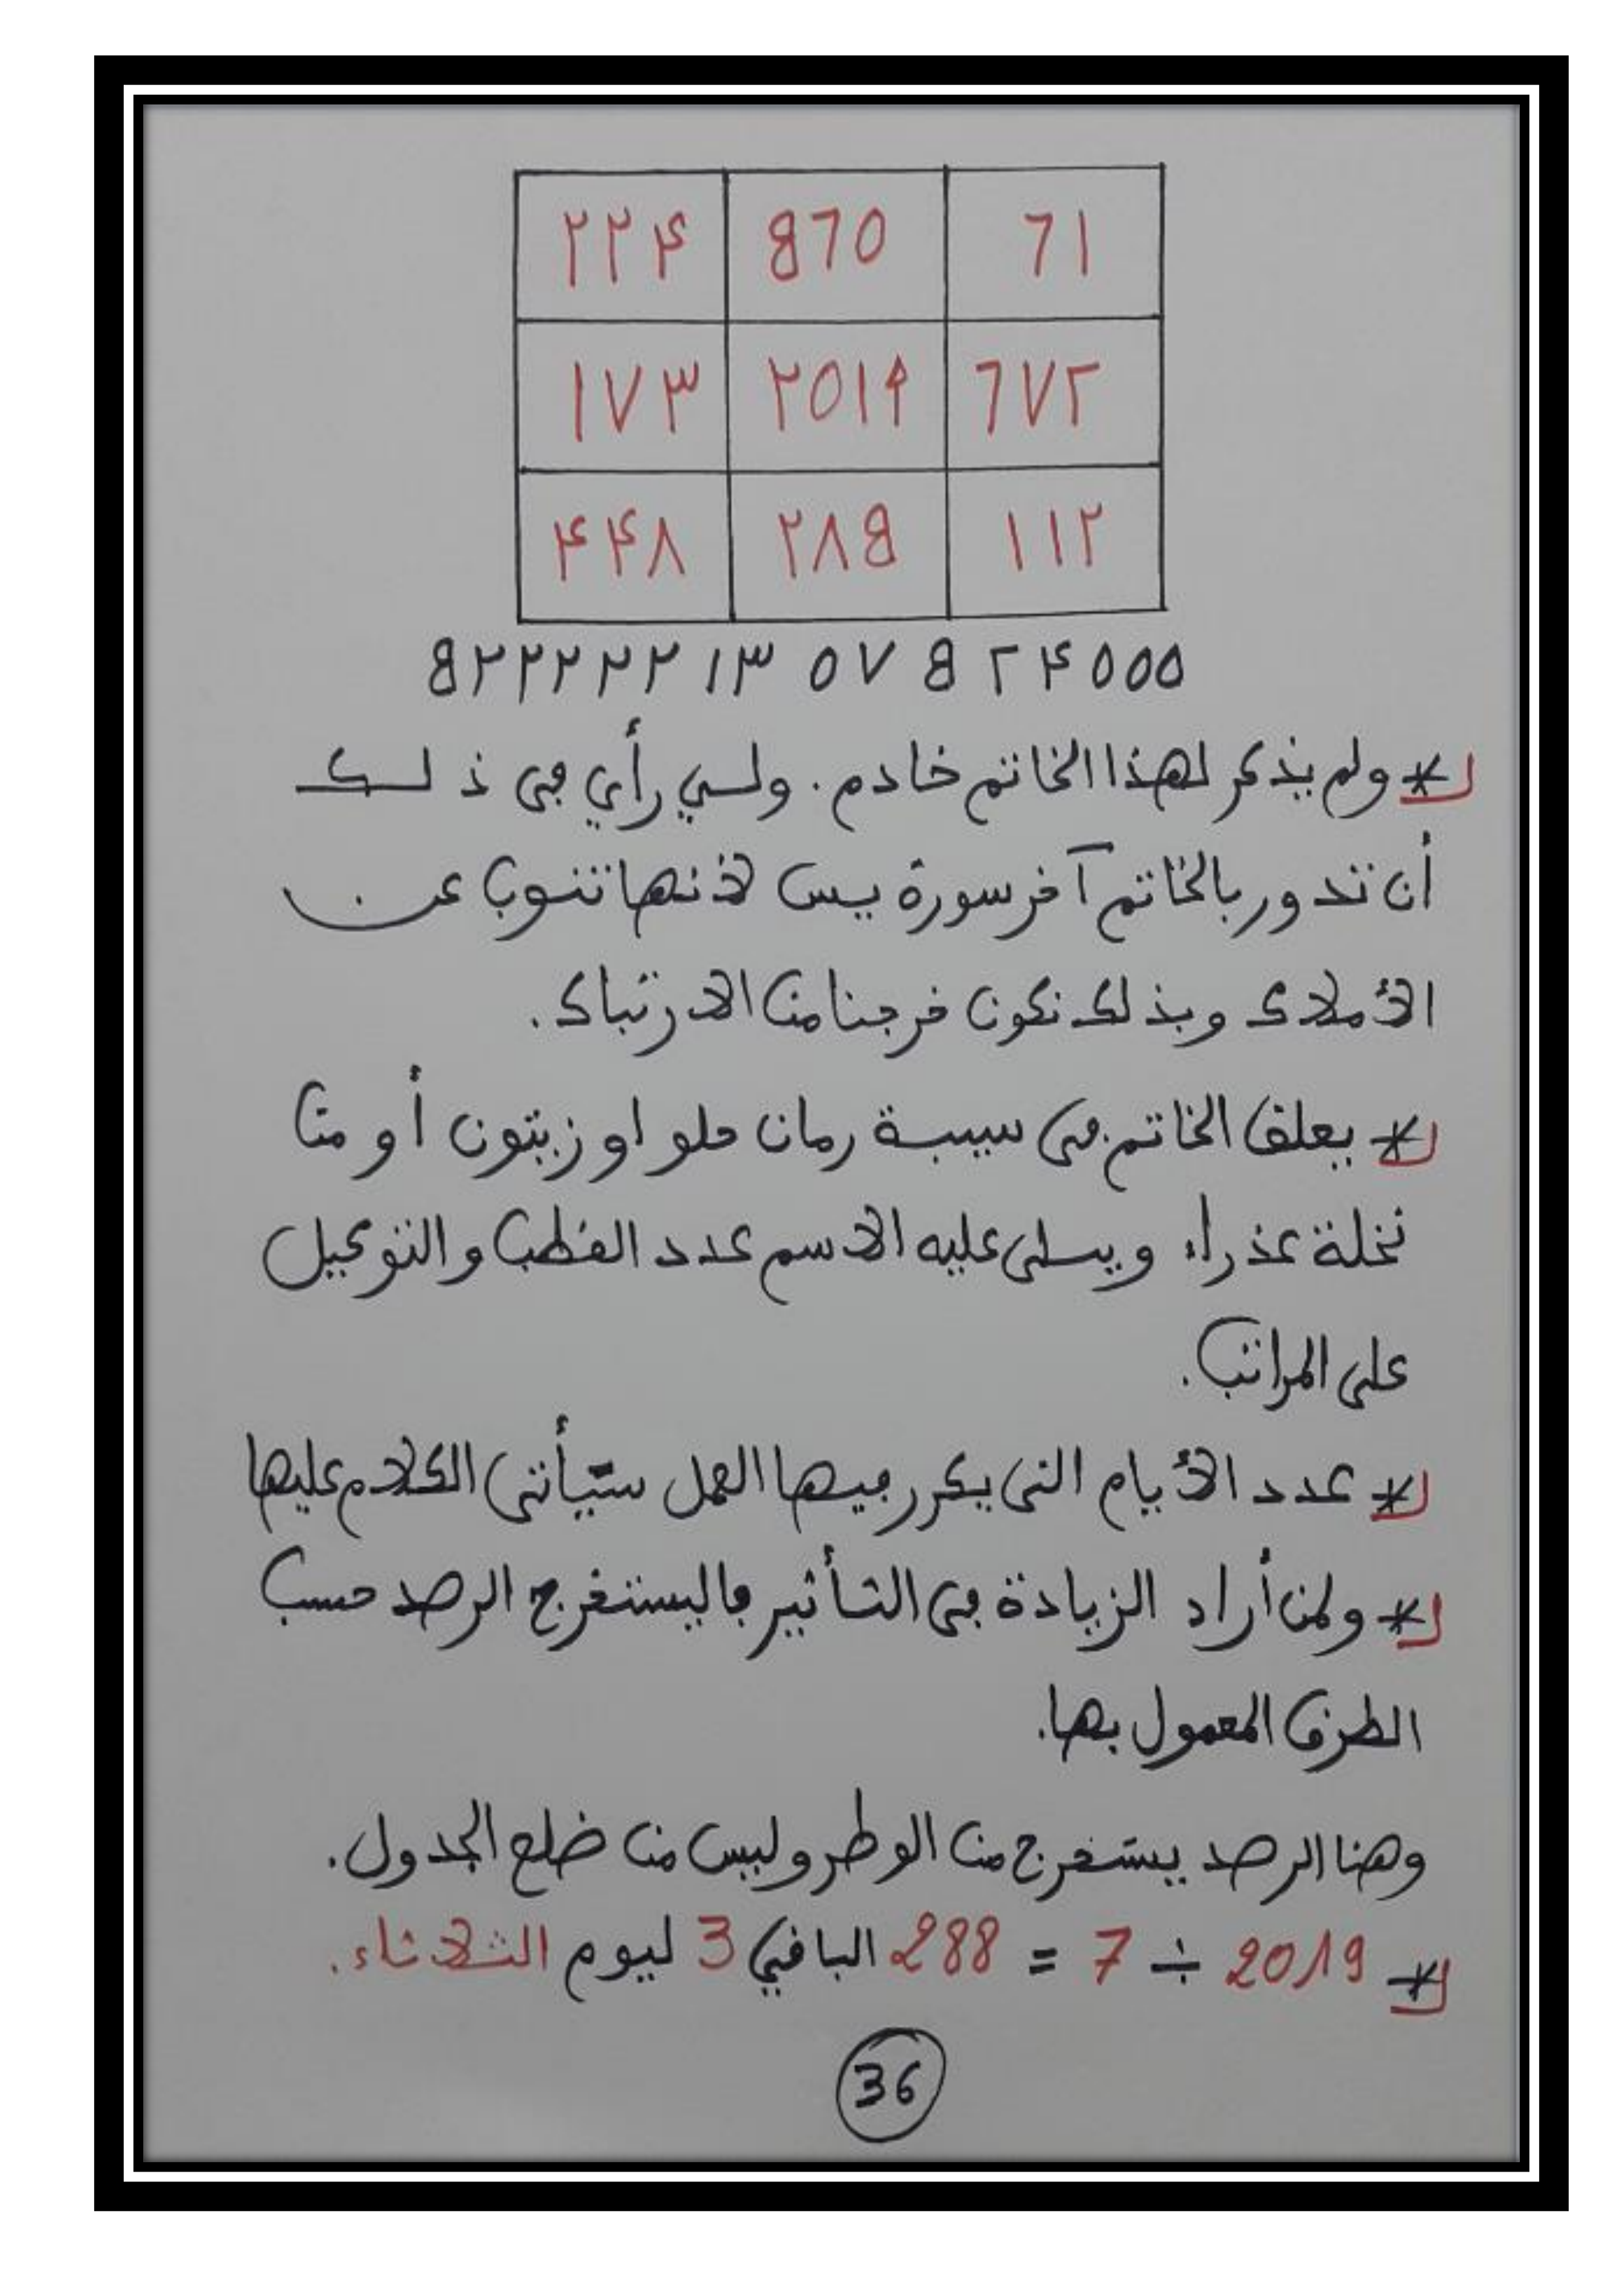 ٢٢٤ 8٦٥ ٦١
١٧٣ ٢٥١٩ ٦٧٢
٤٤٨ ٢٨8 ١١٢
8٢٢٢٢٢ ١٣ ٥٧ 8 ٢ ٤ ٥٥٥
* ولم يذكر لهذا الخاتم خادم. ولي رأي في ذلك
أن تدور بالخاتم آخر سورة يس لأنها تنوب عن
الأملاك وبذلك نكون خرجنا من الارتباك.
* يعلق الخاتم في سيبة رمان حلو او زيتون أو من
نخلة عذراء ويتلى عليه الاسم عدد القطب والتوكيل
على المراتب.
* عدد الأيام التي يكرر فيها العمل ستأتي الكلام عليها
* ولمن أراد الزيادة في التأثير فاليستخرج الرصد حسب
الطرق المعمول بها.
وهنا الرصد يستخرج من الوطر وليس من ضلع الجدول.
* 2019 ÷ 7 = 288 الباقي 3 ليوم الثلاثاء.
36